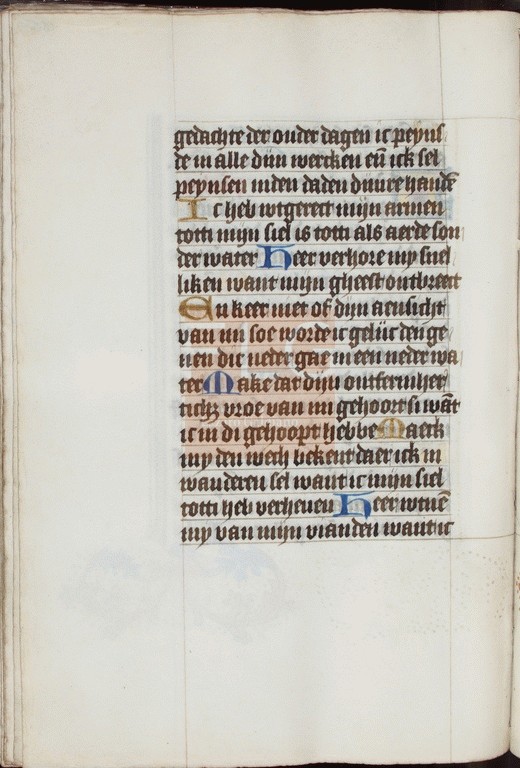 gedachte der ouder dagen ic peyns
de in alle dijn wercken eñ ick sel
peynsen inden daden dijnre handẽ
Ic heb wtgerect mijn armen
totti mijn siel is totti als aerde son
der water Heer verhore my snel
liken want mijn gheest ontbreect
En keer niet of dijn aensicht
van mi soe worde ic gelijc den ge
nen die neder gae in een neder wa
ter Make dat dijn ontfermher
ticht vroe van mi gehoort si wãt
ic in di gehoopt hebbe Maeck
my den wech bekent daer ick in
wanderen sel want ic mijn siel
totti heb verheuen Heer wtnẽ
my van mijn vianden want ic